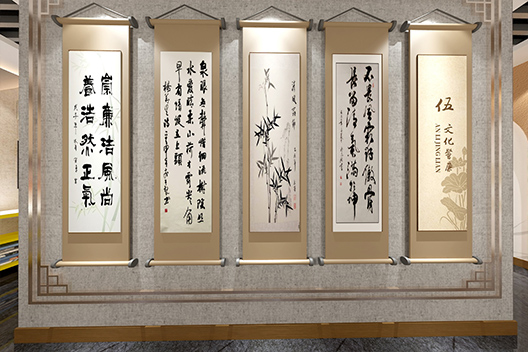 崇廉洁風尚
養浩然正氣
泉眼無聲惜細流樹陰照
水愛晴柔小荷才露尖尖角
早有蜻蜓立上頭
不要人誇好顏色
只留清氣滿乾坤
伍
文化廉
ANLIJINGLIAN